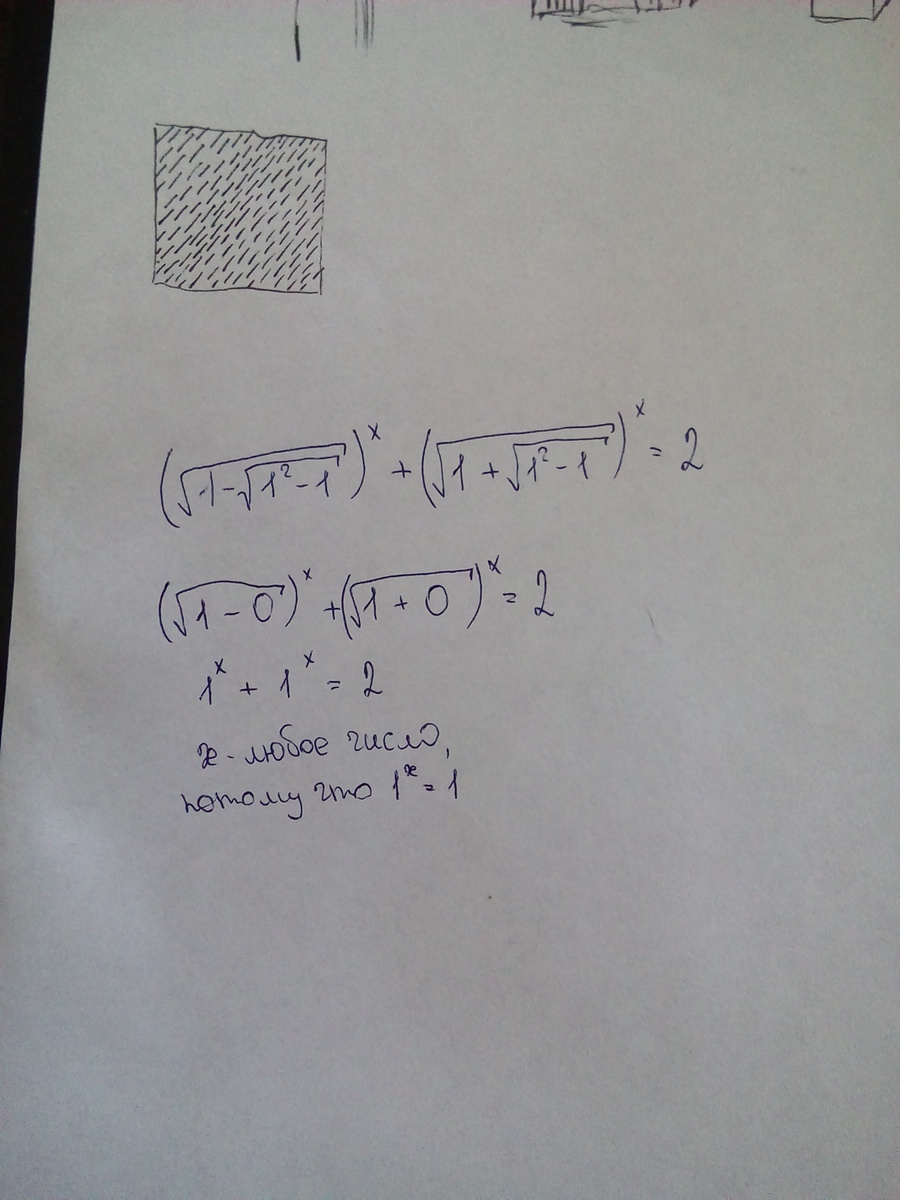 (√(1-√(1²-1)))ˣ + (√(1+√(1²-1)))ˣ = 2
(√(1-0))ˣ + (√(1+0))ˣ = 2
1ˣ + 1ˣ = 2
x - любое число,
потому что 1ˣ = 1